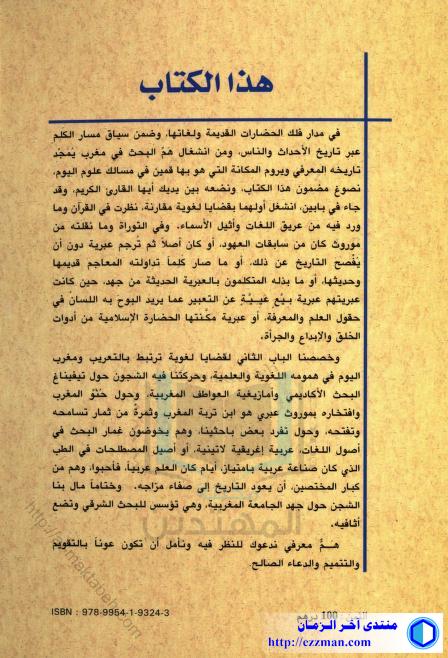 هذا الكتاب
في مدار فلك الحضارات القديمة ولغاتها، وضمن سياق مسار الكلم
عبر تاريخ الأحداث والناس، ومن انشغال همُّ البحث في مغرب يُمَجِّد
تاريخه المعرفي ويروم المكانة التي هو بها قمين في مسالك علوم اليوم،
نصوغ مضمون هذا الكتاب، ونضعه بين يديك أيها القارئ الكريم، وقد
جاء في بابين، انشغل أولهما بقضايا لغوية مقارنة، نظرت في القرآن وما
ورد فيه من عريق اللغات وأثيل الأسماء، وفي التوراة وما نقلته من
موروث كان من سابقات العهود، أو كان أصلاً ثم تُرجم عبرية دون أن
يُفْصح التاريخ عن ذلك، أو ما صار كلماً تداولته المعاجم قديمها
وحديثها، أو ما بذله المتكلمون بالعبرية الحديثة من جهد، حين كانت
عبريتهم عبرية بِيَعٍ عَيِيَّةٍ عن التعبير عما يريد البوح به اللسان في
حقول العلم والمعرفة، أو عبرية مكَّنتها الحضارة الإسلامية من أدوات
الخلق والإبداع والجرأة،
وخصصنا الباب الثاني لقضايا لغوية ترتبط بالتعريب ومغرب
اليوم في همومه اللغوية والعلمية، وحركتنا فيه الشجون حول تيفيناغ
البحث الأكاديمي وأمازيغية العواطف المغربية، وحول حُنُوِّ المغرب
وافتخاره بموروث عبري هو ابن تربة المغرب وثمرةُ من ثمار تسامحه
وتفتحه، وحول تفرد بعض باحثينا، وهم يخوضون غمار البحث في
أصول اللغات، عربية إغريقية لاتينية، أو أصيل المصطلحات في الطب
الذي كان صناعة عربية بامتياز، أيام كان العلم عربياً، فأحبوا، وهم من
كبار المختصين، أن يعود التاريخ إلى صفاء مزاجه، وختاماً مال بنا
الشجن حول جهد الجامعة المغربية، وهي تؤسس للبحث الشرقي وتضع
أثافيه.
هَمٌّ معرفي ندعوك للنظر فيه ونأمل أن تكون عوناً بالتقويم
والتتميم والدعاء الصالح.
المهندس
ISBN : 978-9954-1-9324-3
100 درهم
منتدى آخر الزمان
http://czzman.com